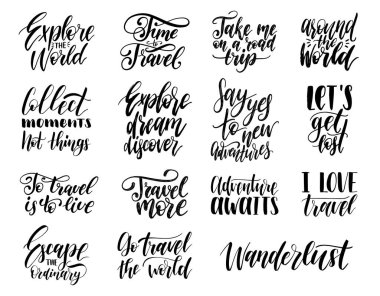 Explore
the
World
Time
to
Travel
Take me
on a road
trip
around
the
world
Collect
moments
Not things
Explore
dream
discover
Say
yes
to new
adventures
LET'S
get
lost
To travel
is to live
Travel
more
Adventure
awaits
I LOVE
travel
Escape
the
Ordinary
Go travel
the world
Wanderlust